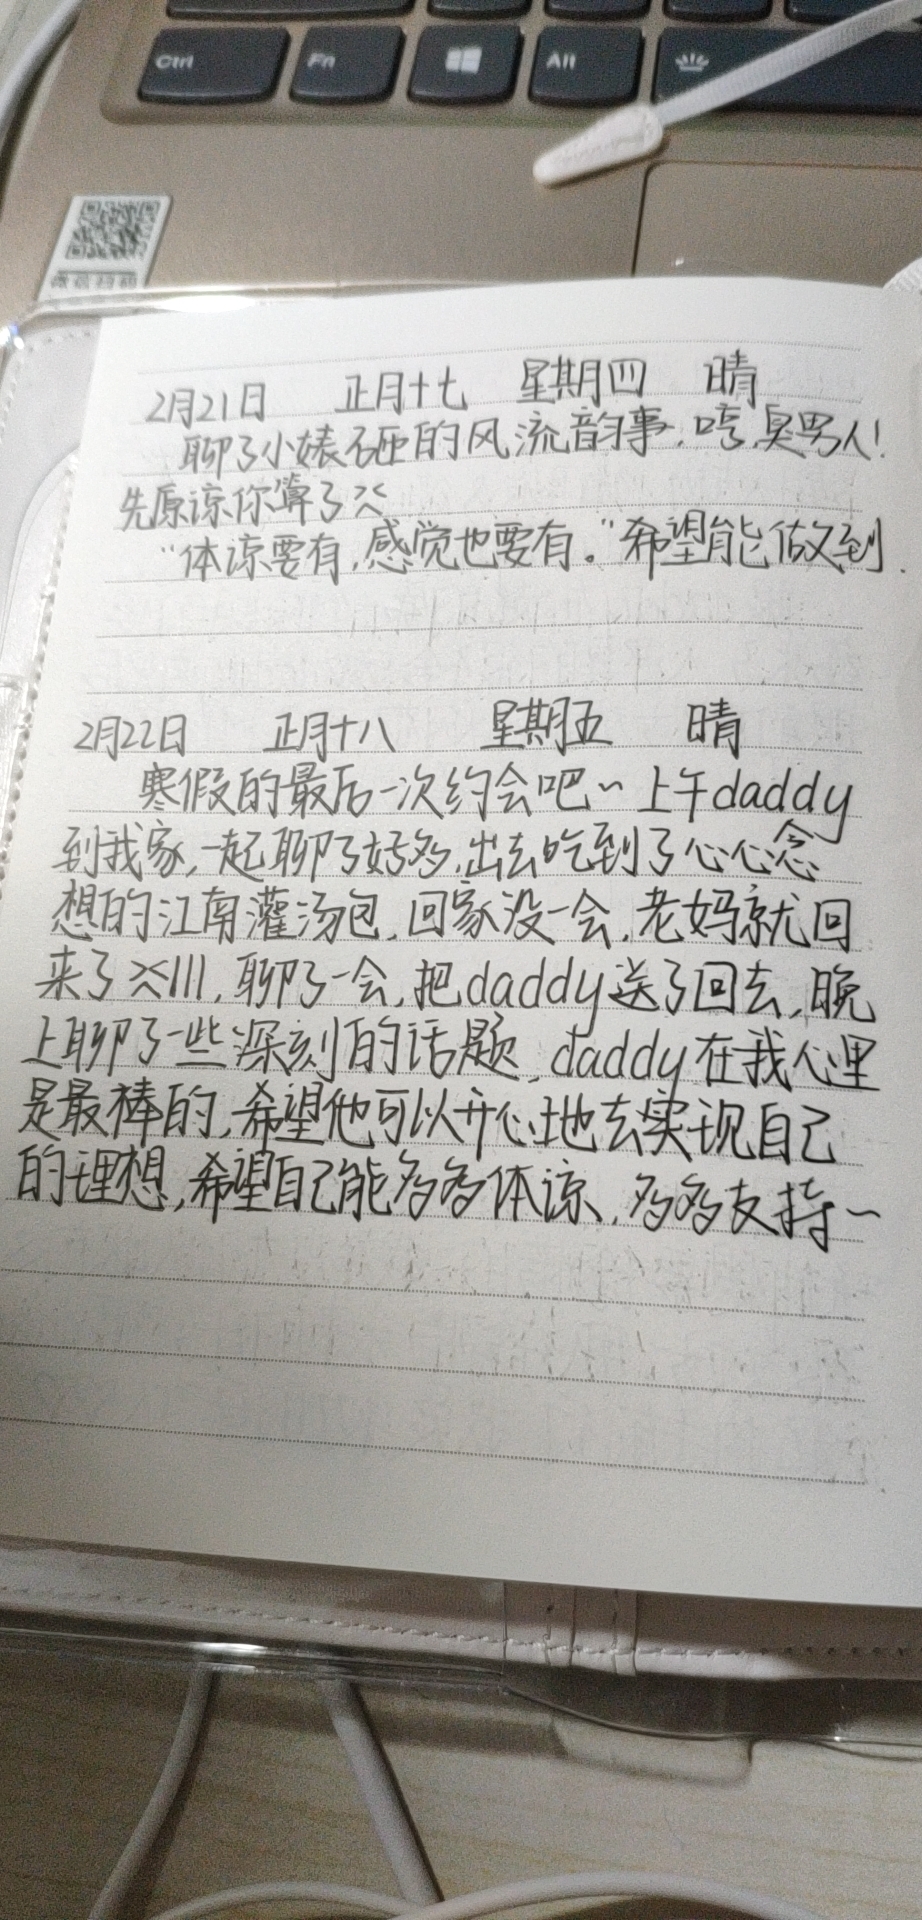 Ctrl
Fn
Alt
微信扫码
2月21日 正月十七 星期四 晴
聊了小婊砸的风流韵事,哼,臭男人!
先原谅你算了
“体谅要有,感觉也要有。”希望能做到.
2月22日 正月十八 星期五 晴
寒假的最后一次约会吧~上午daddy
到我家,一起聊了好多,出去吃到了心心念
想的江南灌汤包,回家没一会,老妈就回
来了,聊了一会,把daddy送了回去,晚
上聊了一些深刻的话题,daddy在我心里
是最棒的,希望他可以开心地去实现自己
的理想,希望自己能多多体谅,多多支持~